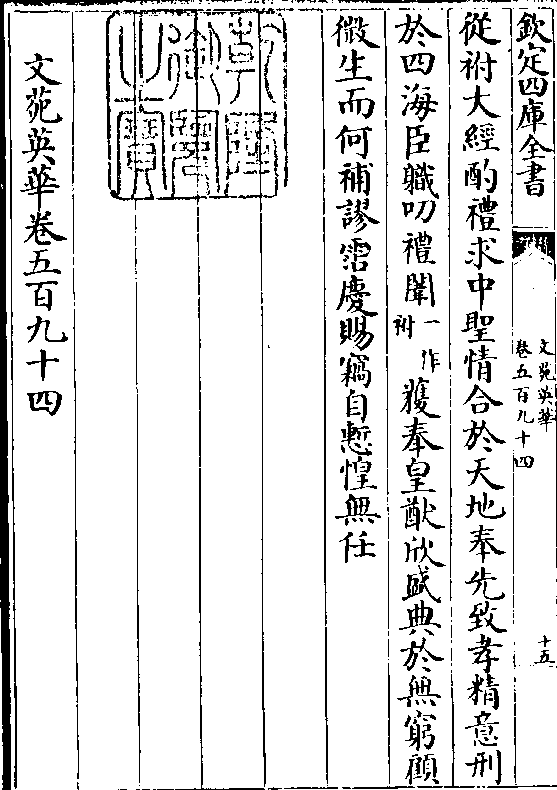 欽定四庫全書
文苑英華
卷五百九十四
十五
從祔大經酌禮求中聖情合於天地奉先致孝精意刑
於四海臣職叨禮闈一作祔獲奉皇猷欣盛典於無窮顧
微生而何補謬霑慶賜竊自慙惶無任
乾隆御覽之寶
文苑英華卷五百九十四